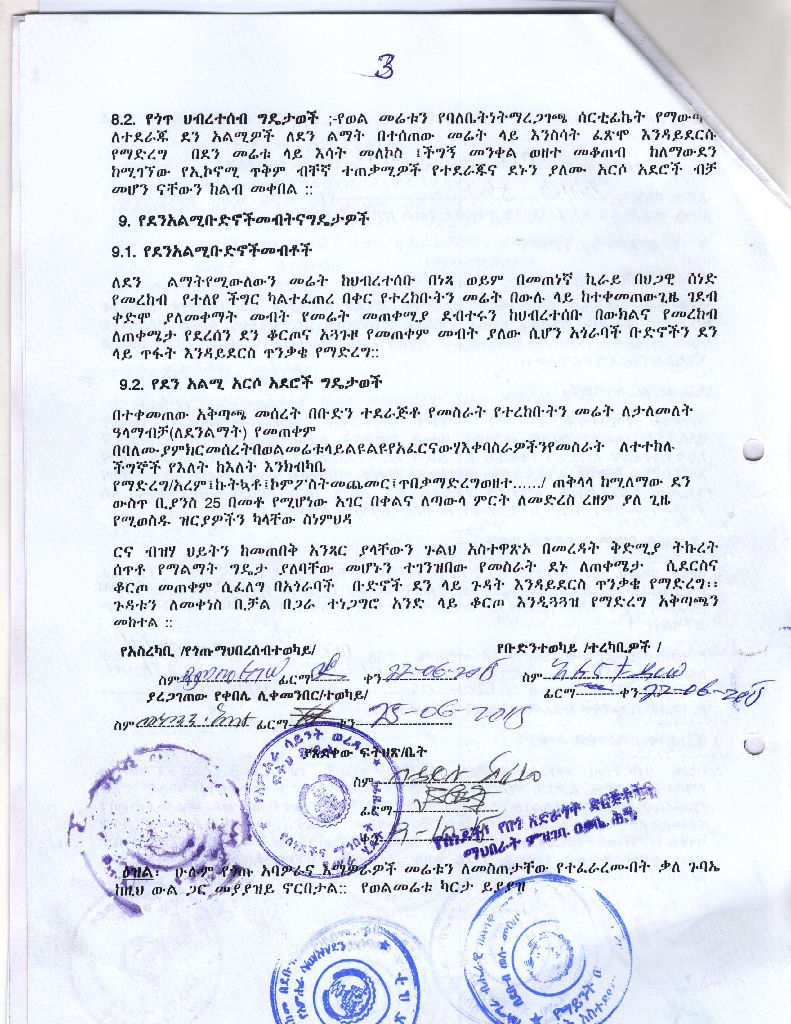 3
8.2. የጎጥ ህብረተሰብ ግዴታወች ;-የወል መሬቱን የባለቤትነትማረጋገጫ ሰርቲፊኬት
ለተደራጁ ደን አልሚዎች ለደን ልማት በተሰጠው መሬት ላይ እንስሳት ፈጽሞ እንዳይደርሱ
የማድረግ በደን መሬቱ ላይ እሳት መለኮስ ፤ችግኝ መንቀል ወዘተ መቆጠብ ከለማውደን
ከሚገኘው የኢኮኖሚ ጥቅም ብቸኛ ተጠቃሚዎች የተደራጁና ደኑን ያለሙ አርሶ አደሮች ብቻ
መሆን ናቸውን ከልብ መቀበል ::
9. የደንአልሚቡድኖችመብትናግዴታዎች
9.1. የደንአልሚቡድኖችመብቶች
ለደን ልማትየሚውለውን መሬት ከህብረተሰቡ በነጻ ወይም በመጠነኛ ኪራይ በህጋዊ ሰነድ
የመረከብ የተለየ ችግር ካልተፈጠረ በቀር የተረከቡትን መሬት በውሉ ላይ ከተቀመጠውጊዜ ገደብ
ቀድሞ ያለመቀማት መብት የመሬት መጠቀሚያ ደብተሩን ከህብረተሰቡ በውክልና የመረከብ
ለጠቀሜታ የደረሰን ደን ቆርጦና አጓጉዞ የመጠቀም መብት ያለው ሲሆን አጎራባች ቡድኖችን ደን
ላይ ጥፋት እንዳይደርስ ጥንቃቄ የማድረግ::
9.2. የደን አልሚ አርሶ አደሮች ግዴታወች
በተቀመጠው አቅጣጫ መሰረት በቡድን ተደራጅቶ የመስራት የተረከቡትን መሬት ለታለመለት
ዓላማብቻ(ለደንልማት) የመጠቀም
በባለሙያምክርመሰረትበወልመሬቱላይልዩልዩየአፈርናውሃእቀባስራዎችንየመስራት ለተተከሉ
ችግኞች የእለት ከእለት እንክብካቤ
የማድረግ/አረም፤ኩትኳቶ፤ኮምፖስትመጨመር፤ጥበቃማድረግወዘተ....../ ጠቅላላ ከሚለማው ደን
ውስጥ ቢያንስ 25 በመቶ የሚሆነው አገር በቀልና ለጣውላ ምርት ለመድረስ ረዘም ያለ ጊዜ
የሚወስዱ ዝርያዎችን ካላቸው ስነምህዳ
ርና ብዝሃ ህይትን ከመጠበቅ አንጻር ያላቸውን ጉልህ አስተዋጽኦ በመረዳት ቅድሚያ ትኩረት
ሰጥቶ የማልማት ግዴታ ያለባቸው መሆኑን ተገንዝበው የመስራት ደኑ ለጠቀሜታ ሲደርስና
ቆርጦ መጠቀም ሲፈለግ በአጎራባች ቡድኖች ደን ላይ ጉዳት እንዳይደርስ ጥንቃቄ የማድረግ፡፡
ጉዳቱን ለመቀነስ ቢቻል በጋራ ተነጋግሮ አንድ ላይ ቆርጦ እንዲጓጓዝ የማድረግ አቅጣጫን
መከተል ::
የአስረካቢ /የጎጡማህበረሰብተወካይ/ የቡድንተወካይ /ተረካቢዎች /
ስም ፊርማ ቀን 22-06-2015 ስም
ያረጋገጠው የቀበሌ ሊቀመንበር/ተወካይ/ ፊርማ ቀን 22-06-2015
ስም ፊርማ ቀን 25-06-2015
ያጸደቀው ፍትህጽ/ቤት
ስም
ፊርማ
ቀን
የሰነዶችና የበጎ አድራጎት ድርጅቶችና
ማህበራት ምዝገባ ዐቃቤ ሕግ
ዕዝል፡ ሁሉም የጎጡ አባዎራና እማዎራዎች መሬቱን ለመስጠታቸው የተፈራረሙበት ቃለ ጉባኤ
ከዚህ ውል ጋር መያያዝይ ኖርበታል:: የወልመሬቱ ካርታ ይያያዝ